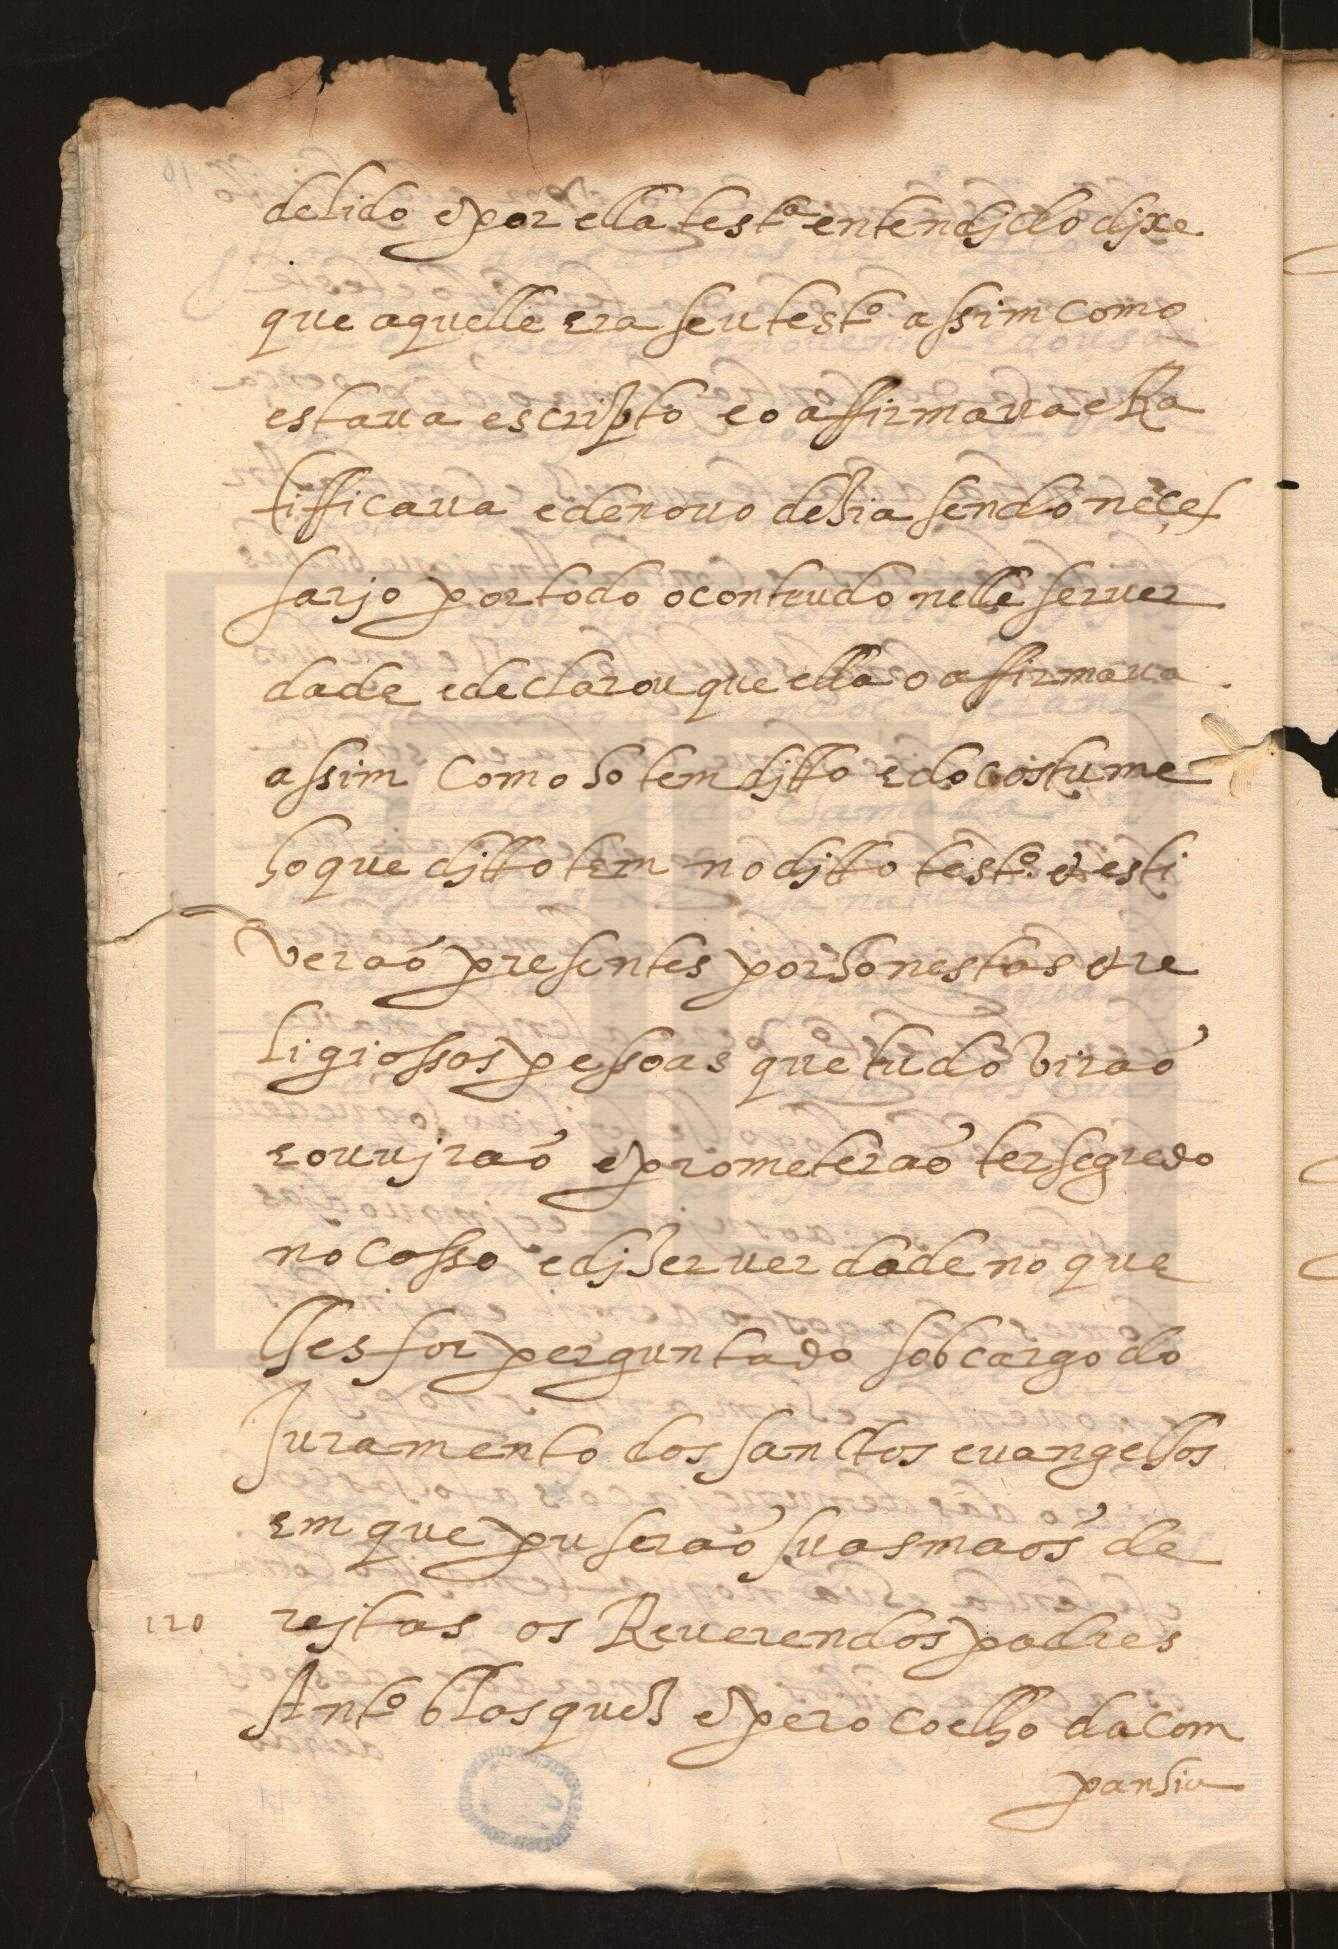 de lido e por ella test.ª entendjdo djxe
que aquelle era seu test.º assim como
estaua escripto e o affirmaua e Ra
tifficaua e de nouo dezia sendo neçes
sarjo por todo o conteudo nelle ser uer
dade e declarou que ella o affirmaua
assim como ho tem djtto e do costume
ho que djtto tem no djtto test.º & esti
verão presentes por honestas & re
ligiossas pessoas que tudo virão
e ouujrão e prometerão ter segredo
no casso e djzer uerdade no que
lhes for perguntado sob cargo do
Juramento dos sanctos euangelhos
em que puserão suas maõs de
rejtas os Reuerendos padres
Ant.º blasquez e pero coelho da com
panhia
120